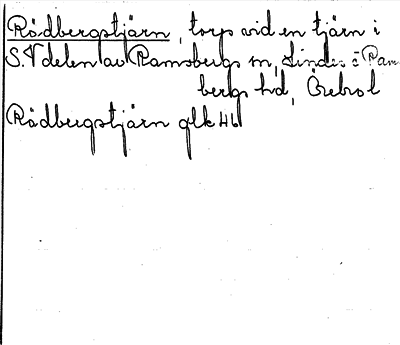 Rödbergstjärn, torp vid en tjärn i
S.V delen av Ramsbergs sn, Lindes o Ram
bergs hd, Örebro l
Rödbergstjärn glk 46